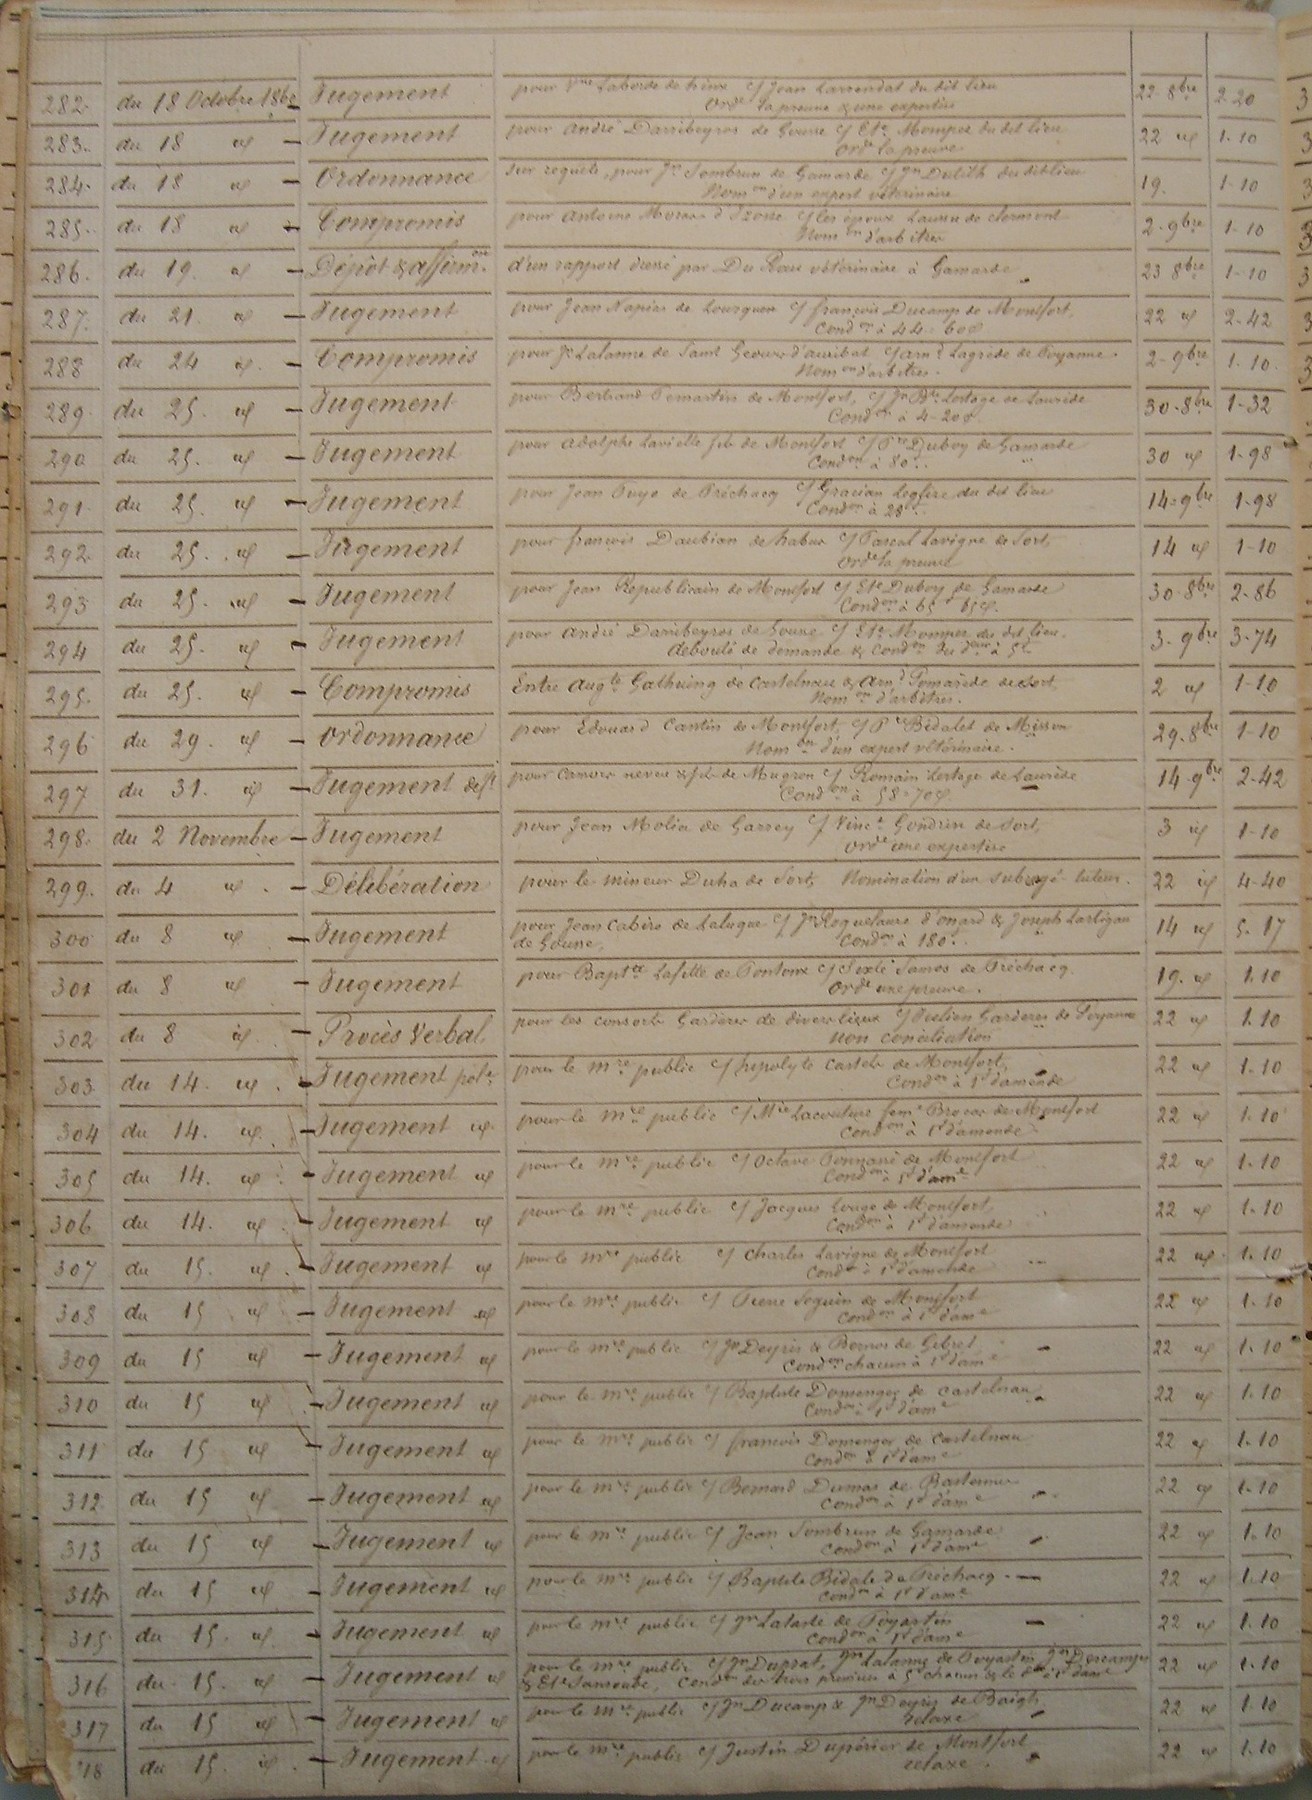 282. du 18 Octobre 1862 Jugement pour Laborde de hinx c/ Jean Larrendat du dit lieu 22 8bre 2-20
Ord. la preuve & une expertise
283. du 18 id Jugement pour André Darribeyros de Gousse c/ Ete Mompez du dit lieu 22 id 1-10
Ord. la preuve
284. du 18 id Ordonnance sur requête, pour Jn Sombrun de Gamarde c/ Jn Dulith du dit lieu 19. 1-10
Nom.on d'un expert vétérinaire
285. du 18 id Compromis pour Antoine d'Ozour c/ les époux de clermont 2-9bre 1-10
Nom.on d'arbitres
286. du 19. id Dépôt & affirm.on d'un rapport dressé par Du Rau vétérinaire à Gamarde 23 8bre 1-10
287. du 21. id Jugement pour Jean Napias de Lourquen c/ françois Ducamp de Montfort, 22 id 2-42
Cond.on à 44-60c
288 du 24 id. Compromis pour Jn Lalanne de Saint Geours d'auribat c/ Arn.d Lagrède de Poyanne 2-9bre 1-10
Nom.on d'arbitres.
289 du 25. id Jugement pour Bertrand Pemartin de Montfort, c/ Jn Bte Lestage de Laurède 30-8bre 1-32
Cond.on à 4-20c
290 du 25. id Jugement pour Adolphe Lavielle fils de Montfort c/ Pre Duboy de Gamarde 30 id 1-98
Cond.on à 80
291. du 25. id Jugement pour Jean Puyo de Préchacq c/ Gracian du dit lieu 14-9bre 1-98
Cond.on à 28
292. du 25. id Jugement pour françois Daubian de habas c/ Pascal Lavigne de Sort, 14 id 1-10
Ord. la preuve
293 du 25. id Jugement pour Jean Republicain de Montfort c/ Ete Duboy de Gamarde 30-8bre 2-86
Cond.on à 65 65c.
294 du 25. id Jugement pour André Darribeyros de Gousse c/ Ete Mompez du dit lieu. 3-9bre 3-74
débouté de demande & cond.on du
295. du 25. id Compromis Entre Aug.te Gathuing de Castelnau & Arn.d Pomarède de Sort, 2 id 1-10
Nom.on d'arbitres.
296 du 29. id Ordonnance pour Edouard Cantin de Montfort, c/ Pre Bidalet de Misson 29.8bre 1-10
Nom.on d'un expert vétérinaire.
297 du 31. id Jugement def.f pour neveu & fils de Mugron c/ Romain Lestage de Laurède 14-9bre 2-42
Cond.on à 58-70c.
298. du 2 Novembre Jugement pour Jean Molia de Garrey c/ Vinc.t Gondrin de Sort, 3 id 1-10
Ord.e une expertise
299. du 4 id. Délibération pour le mineur Duha de Sort, Nomination d'un subrogé-tuteur. 22 id 4-40
300 du 8 id Jugement pour Jean Cabiro de Laluque c/ Jn Roquefaure d'onard & Joseph Lartigau 14 id 5.17
de Gousse, Cond.on à 180
301 du 8 id Jugement pour Bapt.te Lafitte de Pontonx c/ Samos de Préchacq. 19. id 1.10
Ord.e une preuve.
302 du 8 id Procès Verbal, pour les consorts Gardères de divers lieux c/ Gardères de Poyanne 22 id 1.10
Non conciliation
303 du 14. id. Jugement pol.e pour le mre public c/ hipolyte Castets de Montfort, 22 id 1.10
Cond.on à 1f d'amende
304 du 14. id. Jugement id. pour le mre public c/ Mie Lacouture fem.e Brocas de Montfort 22 id 1.10
Cond.on à 1f d'amende
305 du 14. id Jugement id pour le mre public c/ Octave de Montfort 22 id 1.10
Cond.on à 5f d'am.e
306 du 14. id Jugement id pour le mre public c/ Jacques de Montfort, 22 id 1.10
Cond.on à 1f d'amende
307 du 15. id Jugement id pour le mre public c/ Charles Lavigne de Montfort 22 id 1.10
Cond.on à 1f d'amende
308 du 15 id Jugement id pour le mre public c/ Pierre Seguin de Montfort 22 id 1.10
Cond.on à 1f d'am.e
309 du 15 id Jugement id pour le mre public c/ Jn Deyris & de Gibret 22 id 1.10
Cond.on chacun à 1f d'am.e
310 du 15 id Jugement id pour le mre public c/ Baptiste Domenger de castelnau 22 id 1.10
Cond.on à 1f d'am.e
311 du 15 id Jugement id pour le mre public c/ francois Domenger de castelnau 22 id 1.10
Cond.on à 1f d'am.e
312 du 15 id Jugement id pour le mre public c/ Bernard Dumas de Bastennes 22 id 1.10
Cond.on à 1f d'am.e
313 du 15 id Jugement id pour le mre public c/ Jean Sombrun de Gamarde 22 id 1.10
Cond.on à 1f d'am.e
314 du 15 id Jugement id pour le mre public c/ Baptiste Bidale de Préchacq 22 id 1.10
Cond.on à 1f d'am.e
315 du 15. id Jugement id pour le mre public c/ Jn Lataste de Poyartin 22 id 1.10
Cond.on à 1f d'am.e
316 du 15. id Jugement id pour le mre public c/ Jn Duprat, Jn Lalanne de Poyartin Jn Descamps 22 id 1.10
& Ete Sansoube, Cond.on des trois premiers à 5f chacun & le d.er 1f d'am.e
317 du 15 id Jugement id pour le mre public c/ Jn Ducamp & Jn Deyris de Baigts 22 id 1.10
relaxe
18 du 15. id. Jugement id pour le mre public c/ Justin Dupérier de Montfort 22 id 1.10
relaxe.